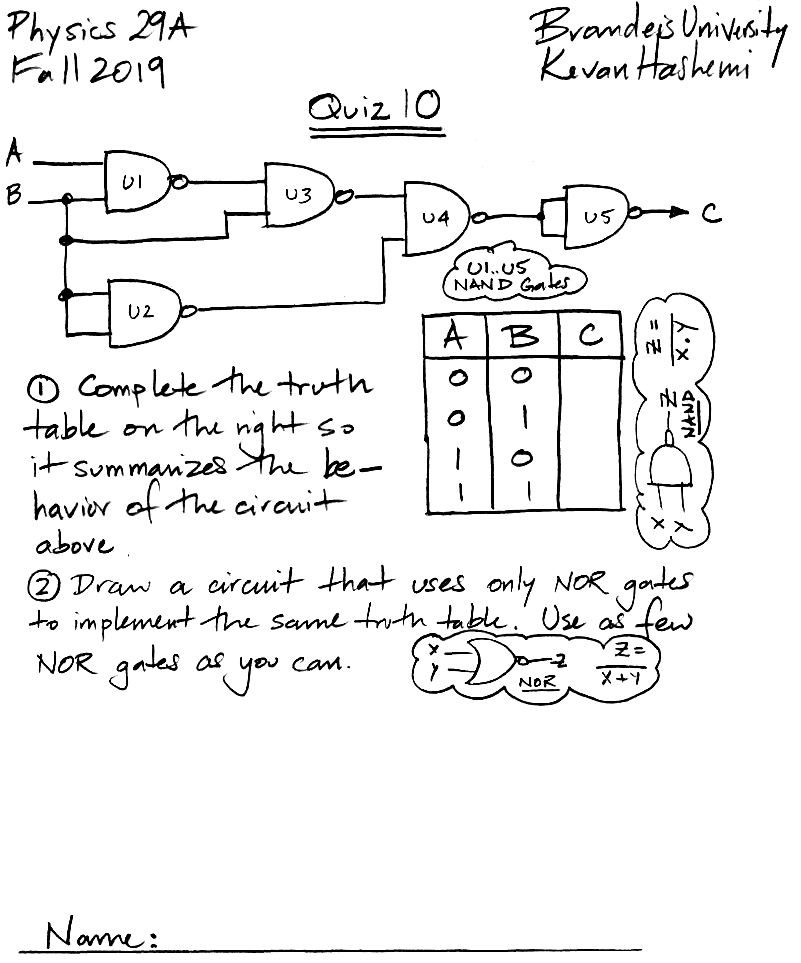 Physics 29A
Fall 2019
Brandeis University
Kevan Hashemi
Quiz 10
A
B
U1
U2
U3
U4
U5
C
U1..U5
NAND Gates
A B C
0 0
0 1
1 0
1 1
Z = X.Y
Z
NAND
X Y
① Complete the truth
table on the right so
it summarizes the be-
havior of the circuit
above.
② Draw a circuit that uses only NOR gates
to implement the same truth table. Use as few
NOR gates as you can.
X
Y
Z
NOR
Z =
X+Y
Name: